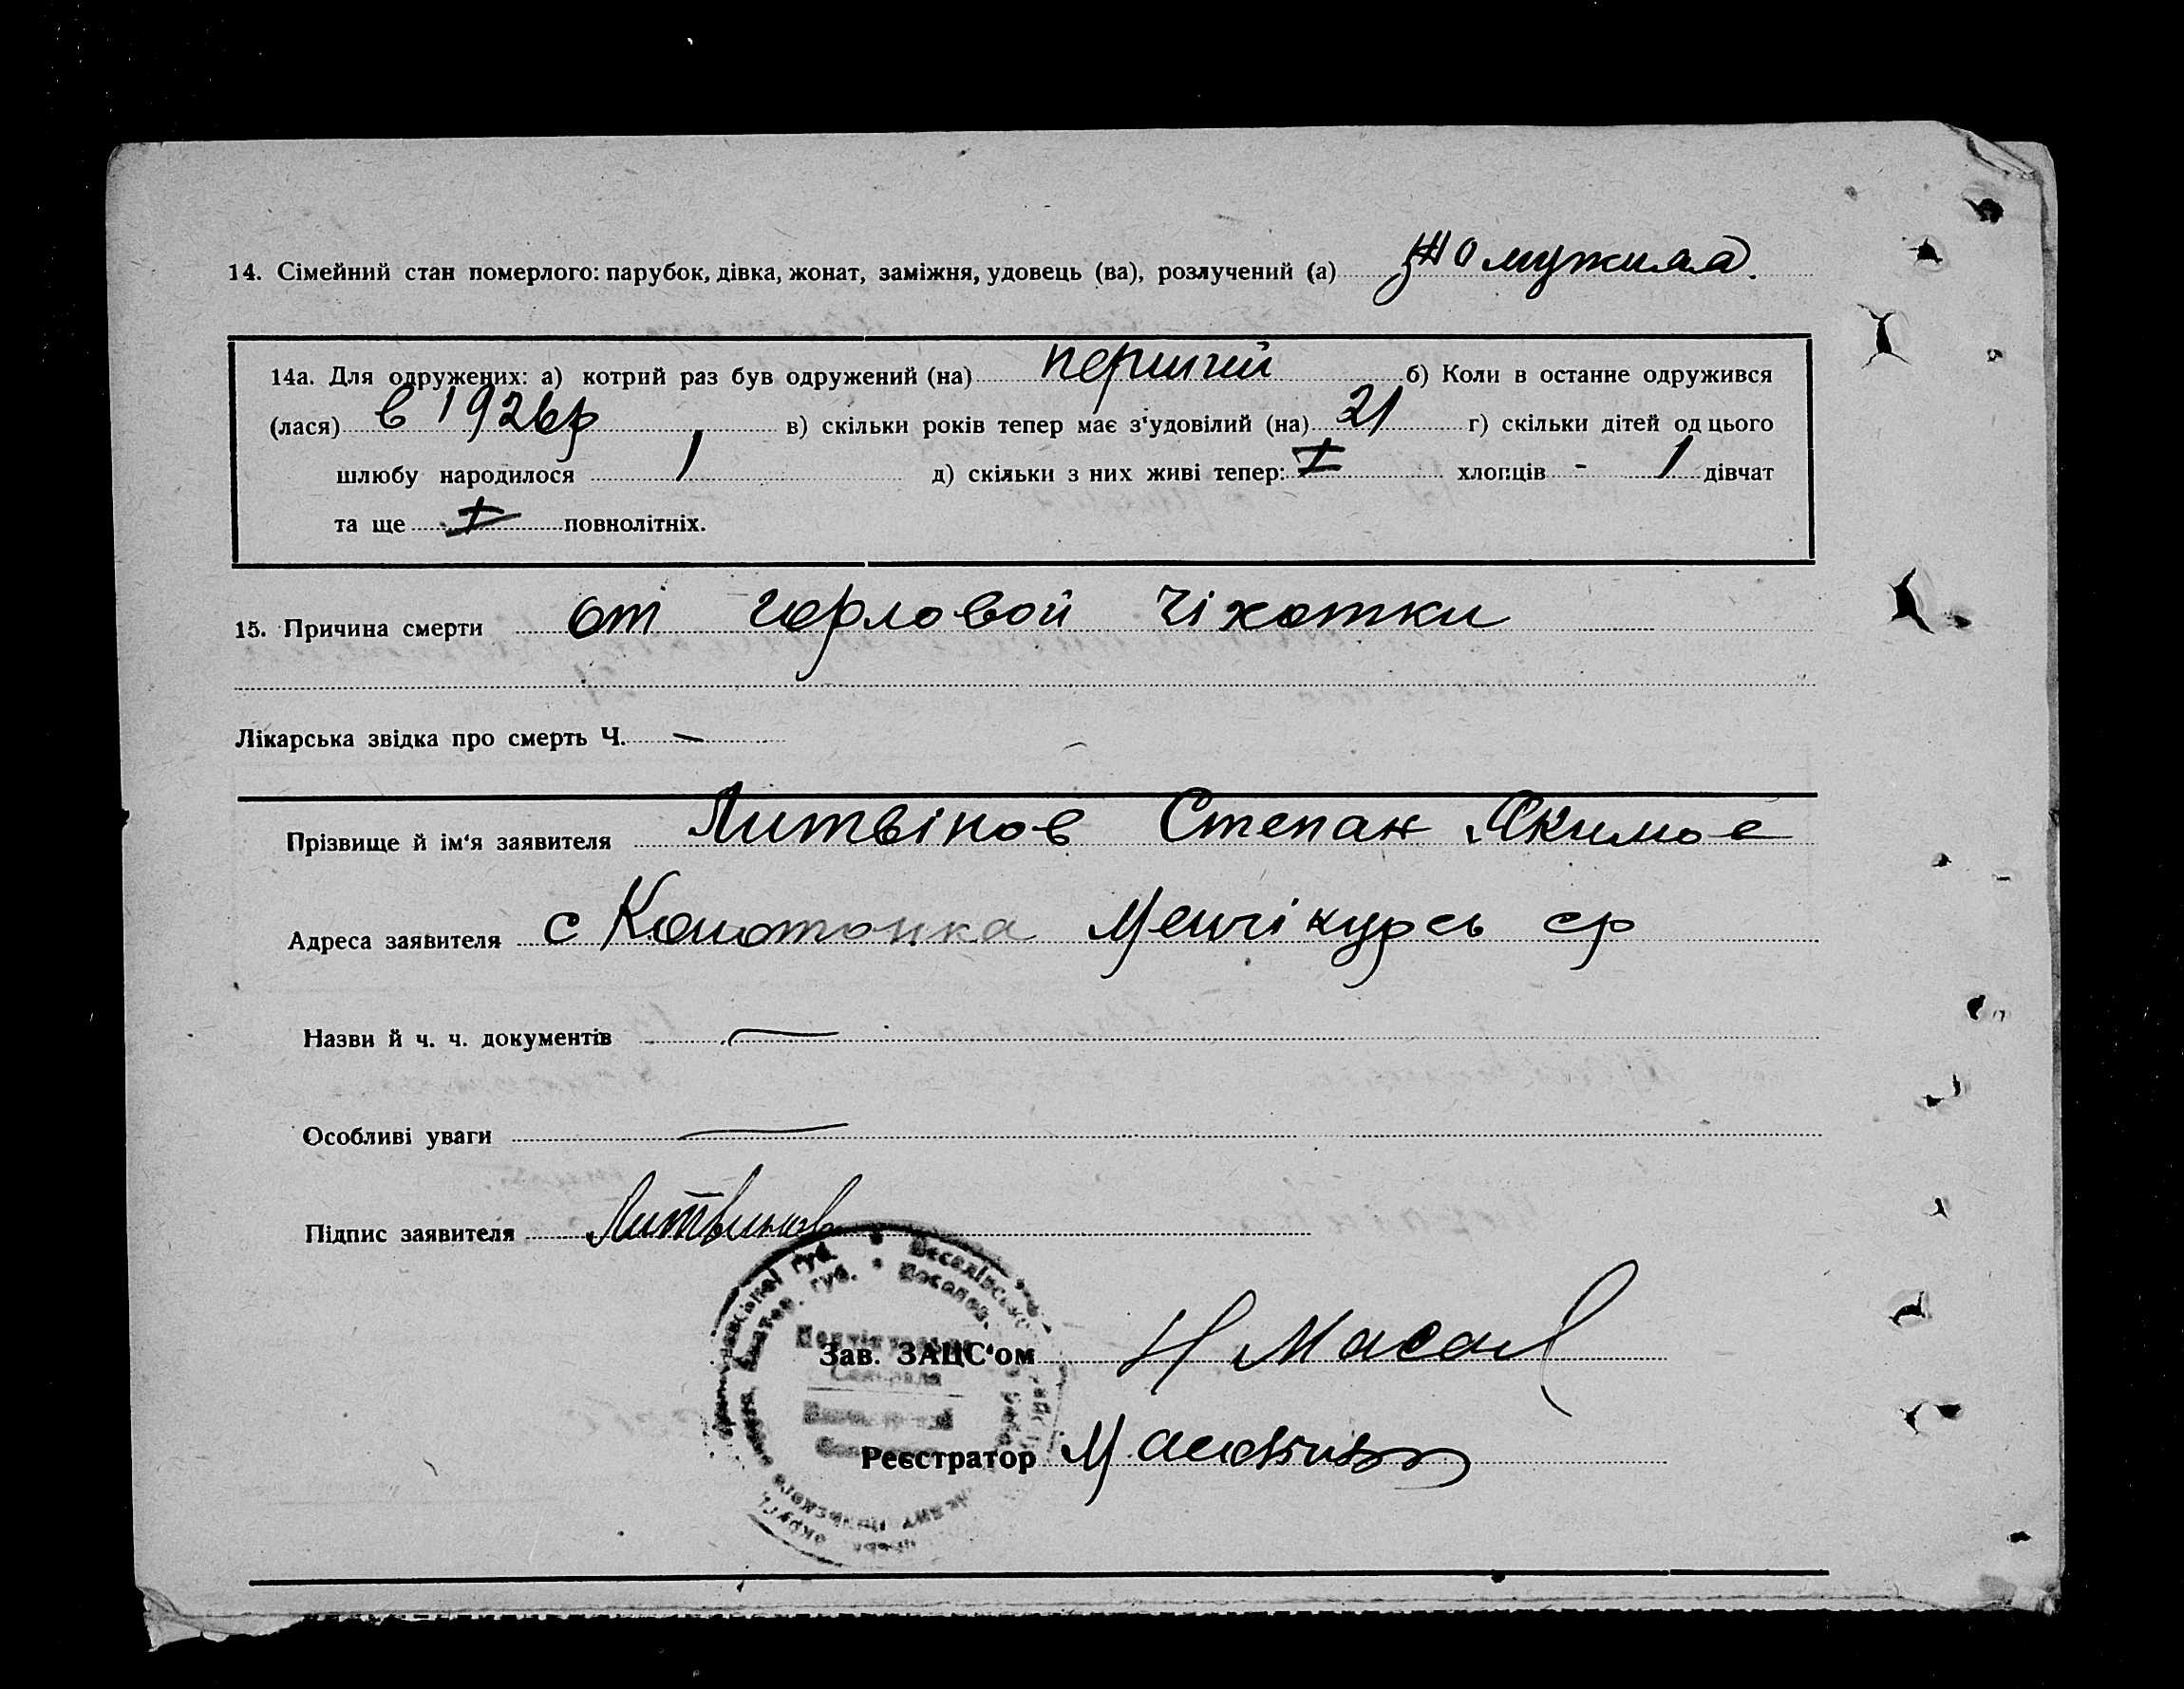 14. Сімейний стан померлого: парубок, дівка, жонат, заміжня, удовець (ва), розлучений (а)
14а. Для одружених: а) котрий раз був одружений (на) перший б) Коли в останне одружився
(лася) в 1926р в) скільки років тепер має з‘удовілий (на) 21 г) скільки дітей од цього
шлюбу народилося 1 д) скільки з них живі тепер: I хлопців - 1 дівчат
та ще I повнолітніх.
15. Причина смерти от горловой чіхотки
Лікарська звідка про смерть Ч. —
Прізвище й ім‘я заявителя Литвінов Степан Якимов
Адреса заявителя с Конотопка Менчікурсь ср
Назви й ч. ч. документів —
Особливі уваги —
Підпис заявителя Литвинов
Зав. ЗАЦС‘ом
Реєстратор